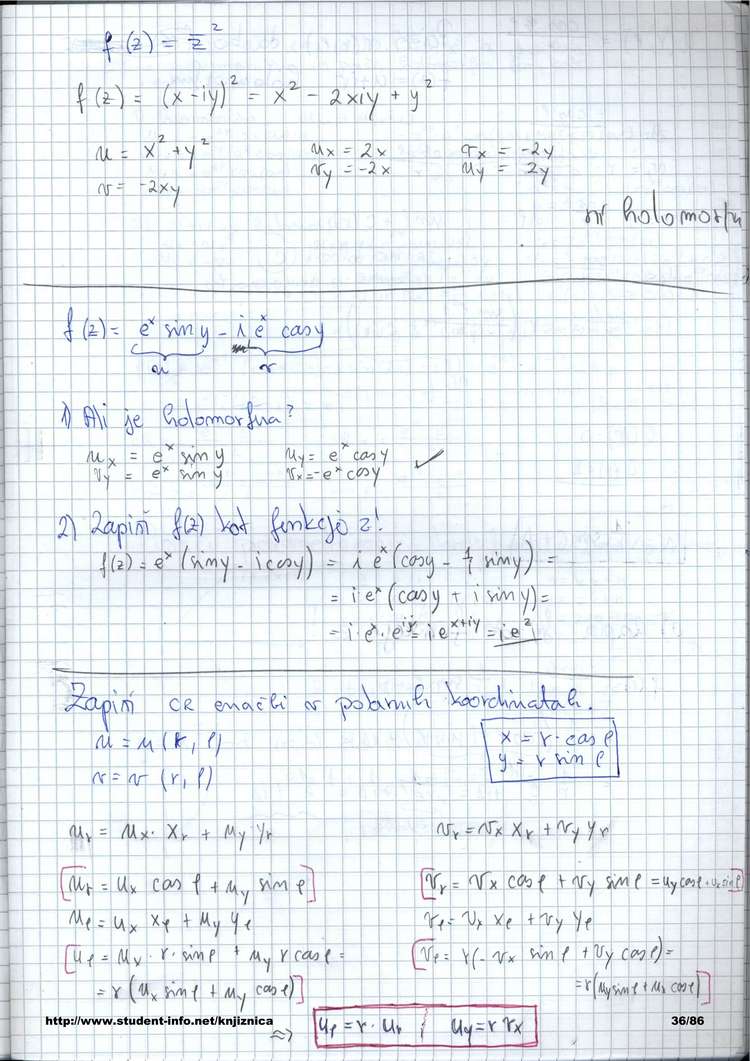 f(z) = z̄²
f(z) = (x-iy)² = x² - 2xiy + y²
u = x² + y²    u_x = 2x    v_x = -2y
v = -2xy    v_y = -2x    u_y = 2y
ni holomorfna
f(z) = e^x sin y - i e^x cos y
u    v
1) Ali je holomorfna?
u_x = e^x sin y    u_y = e^x cos y ✓
v_y = e^x sin y    v_x = -e^x cos y
2) Zapiši f(z) kot funkcijo z!
f(z) = e^x (sin y - i cos y) = i e^x (cos y - 1/i sin y) =
= i e^x (cos y + i sin y) =
= i · e^x · e^{iy} = i e^{x+iy} = i e^z
Zapiši CR enačbi v polarnih koordinatah.
u = u (r, φ)    x = r · cos φ
v = v (r, φ)    y = r sin φ
u_r = u_x · x_r + u_y y_r    v_r = v_x x_r + v_y y_r
[u_r = u_x cos φ + u_y sin φ]    [v_r = v_x cos φ + v_y sin φ = u_y cos φ + u_x sin φ]
u_φ = u_x x_φ + u_y y_φ    v_φ = v_x x_φ + v_y y_φ
[u_φ = u_x · r · sin φ + u_y r cos φ =    [v_φ = r(- v_x sin φ + v_y cos φ) =
= r (u_x sin φ + u_y cos φ)]    = r(u_y sin φ + u_x cos φ)]
http://www.student-info.net/knjiznica    36/86
⇒ u_φ = r · u_r ; u_y = r v_x